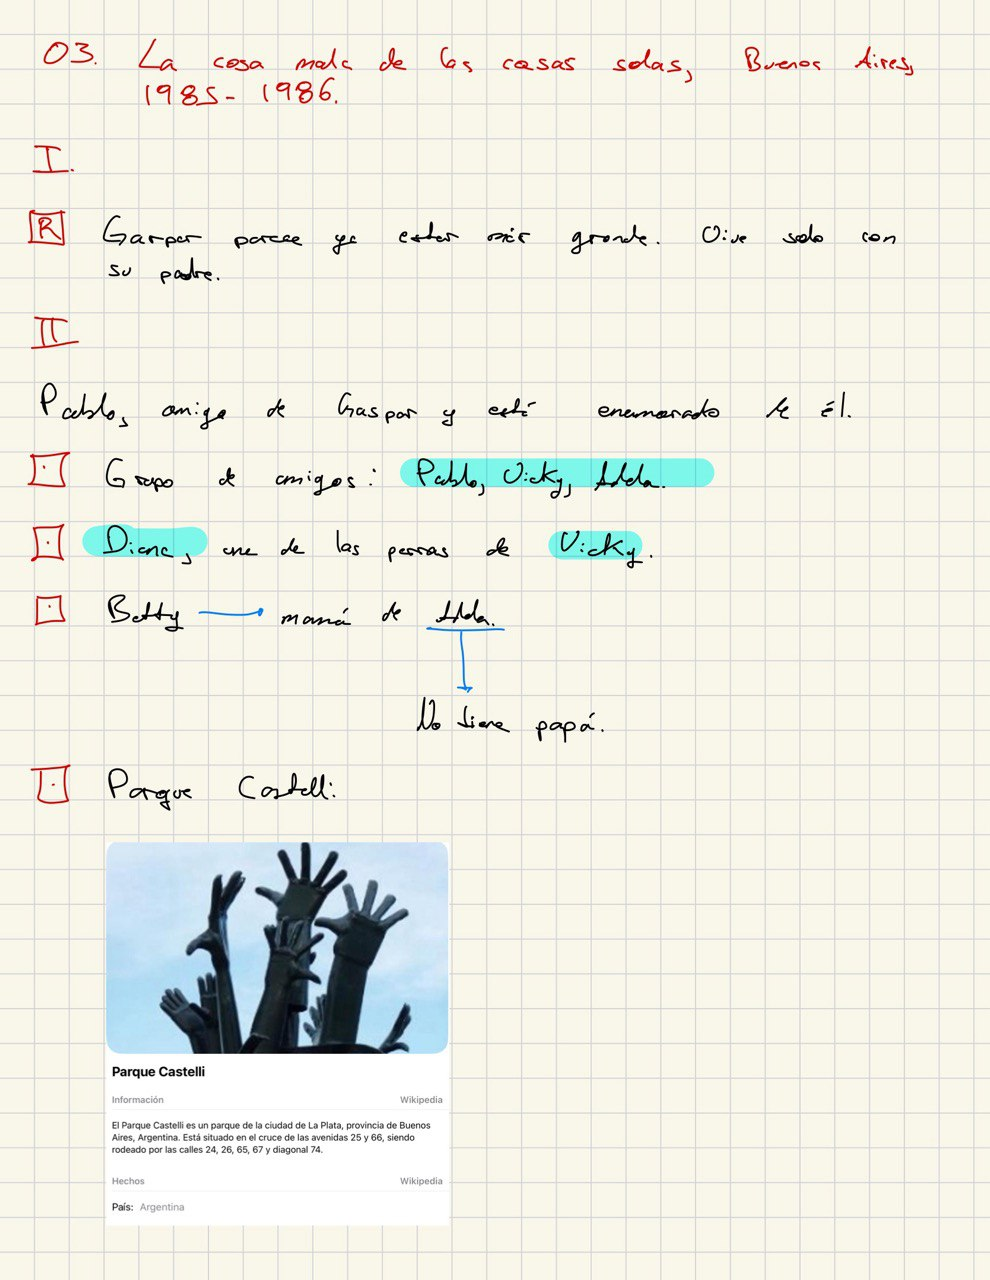 03. La cosa mala de las casas solas, Buenos Aires,
1985- 1986.
I.
R Gaspar parece ya estar más grande. Vive solo con
su padre.
II
Pablo, amigo de Gaspar y está enamorado de él.
Grupo de amigos: Pablo, Vicky, Adela.
Diana, una de las perras de Vicky.
Betty → mamá de Adela.
No tiene papá.
Parque Castelli:
Parque Castelli
Información Wikipedia
El Parque Castelli es un parque de la ciudad de La Plata, provincia de Buenos
Aires, Argentina. Está situado en el cruce de las avenidas 25 y 66, siendo
rodeado por las calles 24, 26, 65, 67 y diagonal 74.
Hechos Wikipedia
País: Argentina